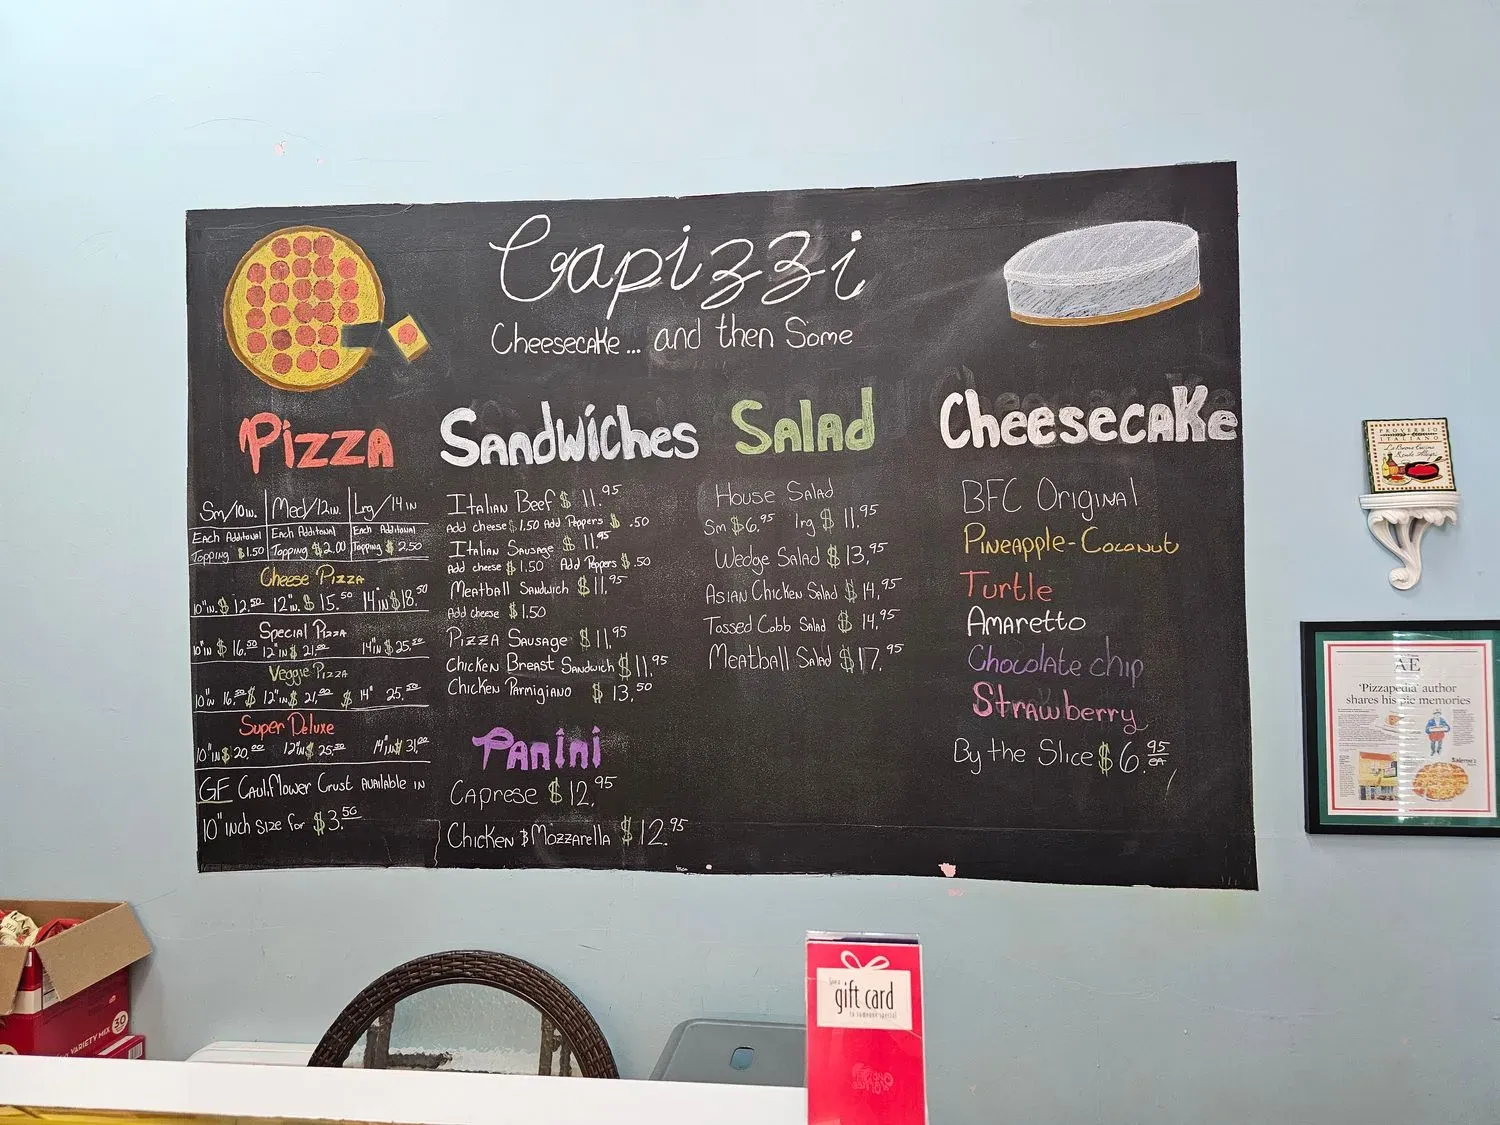 Capizzi
Cheesecake... and then Some
Pizza
Sm/10in. Med/12in. Lrg/14in
Each Additonal Each Additonal Each Additonal
Topping $1.50 Topping $2.00 Topping $2.50
Cheese Pizza
10"in. $12.50 12"in. $15.50 14"in $18.50
Special Pizza
10"in $16.50 12"in $21.00 14"in $25.50
Veggie Pizza
10"in 16.50 $ 12"in $21.00 $14" 25.50
Super Deluxe
10"in $20.00 12"in $25.50 14"in $31.00
GF Cauliflower Crust Available in
10" inch size for $3.50
Sandwiches
Italian Beef $11.95
Add cheese $1.50 Add Peppers $.50
Italian Sausage $11.95
Add cheese $1.50 Add Peppers $.50
Meatball Sandwich $11.95
Add cheese $1.50
Pizza Sausage $11.95
Chicken Breast Sandwich $11.95
Chicken Parmigiano $13.50
Panini
Caprese $12.95
Chicken & Mozzarella $12.95
Salad
House Salad
Sm $6.95 lrg $11.95
Wedge Salad $13.95
Asian Chicken Salad $14.95
Tossed Cobb Salad $14.95
Meatball Salad $17.95
Cheesecake
BFC Original
Pineapple-Coconut
Turtle
Amaretto
Chocolate chip
Strawberry
By the Slice $6.95 ea
PROVERBIO
ITALIANO
AE
'Pizzapedia' author
shares his pie memories
VARIETY MIX 30
gift card
to someone special